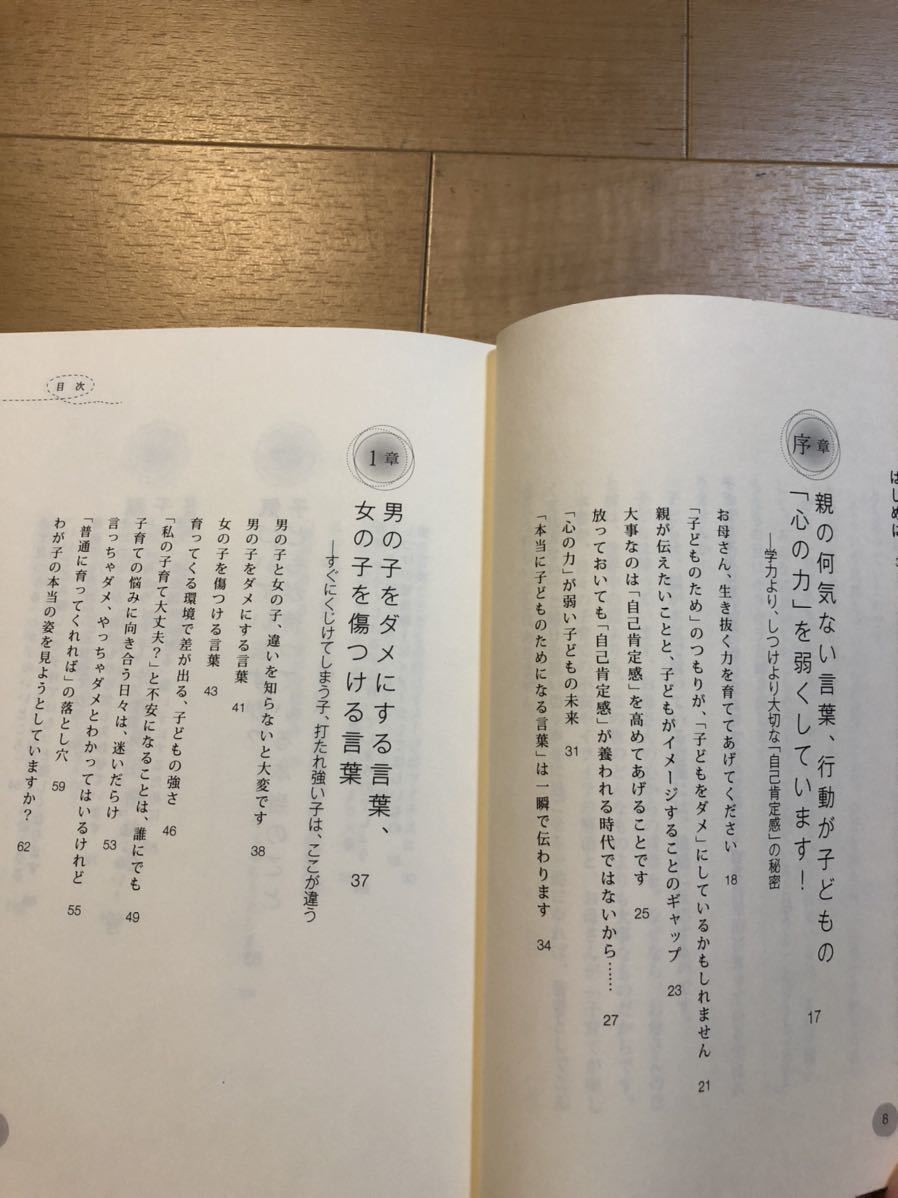 はじめに
序章
親の何気ない言葉、行動が子どもの
「心の力」を弱くしています！ 17
―学力より、しつけより大切な「自己肯定感」の秘密
お母さん、生き抜く力を育ててあげてください 18
「子どものため」のつもりが、「子どもをダメ」にしているかもしれません 21
親が伝えたいことと、子どもがイメージすることのギャップ 23
大事なのは「自己肯定感」を高めてあげることです 25
放っておいても「自己肯定感」が養われる時代ではないから…… 27
「心の力」が弱い子どもの未来 31
「本当に子どものためになる言葉」は一瞬で伝わります 34
8
目次
1章
男の子をダメにする言葉、
女の子を傷つける言葉 37
―すぐにくじけてしまう子、打たれ強い子は、ここが違う
男の子と女の子、違いを知らないと大変です 38
男の子をダメにする言葉 41
女の子を傷つける言葉 43
育ってくる環境で差が出る、子どもの強さ 46
「私の子育て大丈夫？」と不安になることは、誰にでも 49
子育ての悩みに向き合う日々は、迷いだらけ 53
言っちゃダメ、やっちゃダメとわかってはいるけれど 55
「普通に育ってくれれば」の落とし穴 59
わが子の本当の姿を見ようとしていますか？ 62